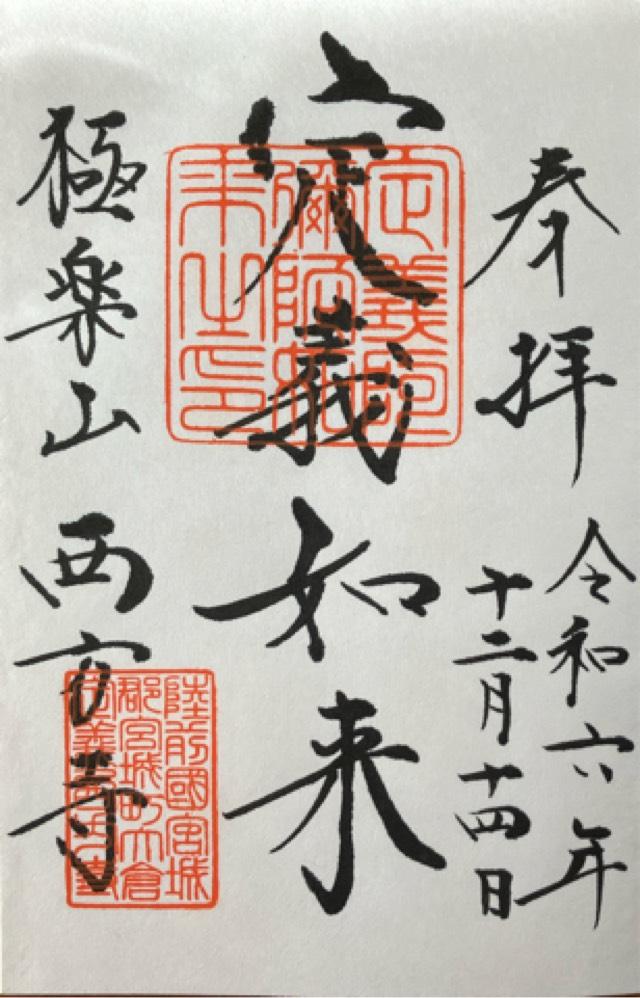 奉拝
令和六年
十二月十四日
定義如来
定義殿
彌陀
来之印
極楽山 西方寺
陸前國宮城
郡宮城町大倉